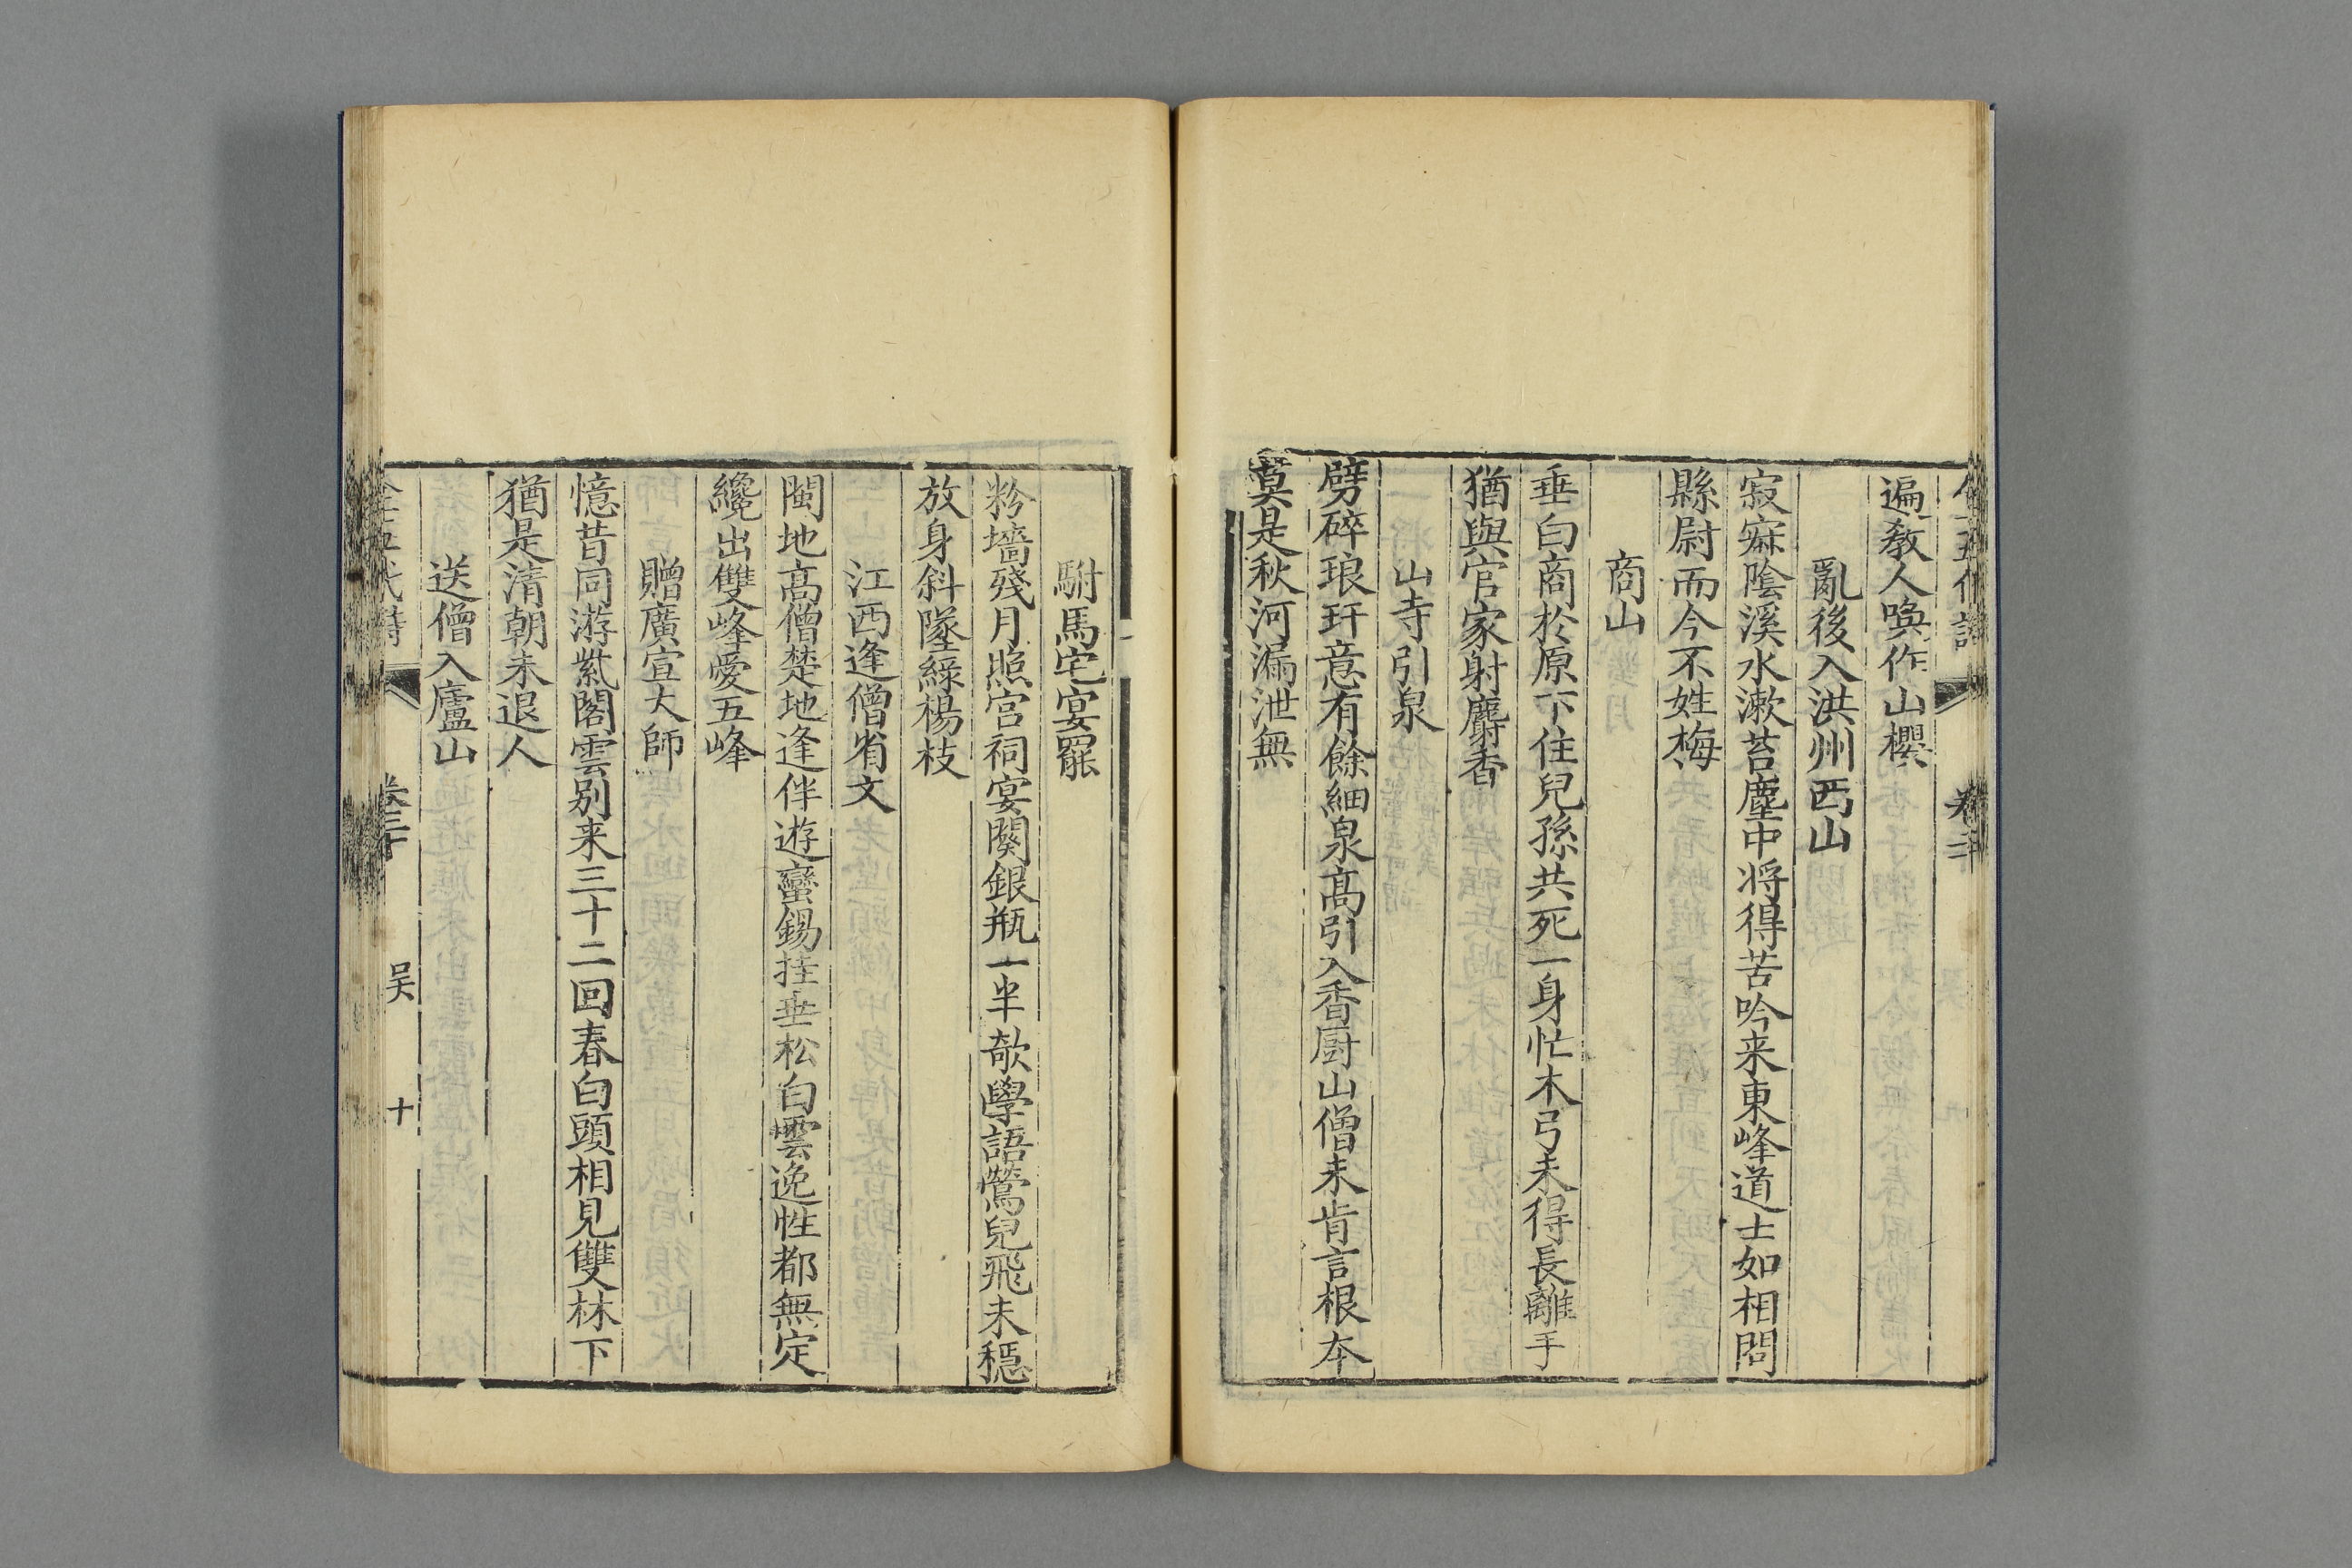 遍教人喚作山櫻
亂後入洪州西山
寂寂陰溪水漱苔塵中將得苦吟来東峰道士如相問
縣尉而今不姓梅
商山
垂白商於原下住兒孫共死一身忙木弓未得長離手
猶與官家射麝香
山寺引泉
劈碎琅玕意有餘細泉高引入香厨山僧未肯言根本
莫是秋河漏泄無
駙馬宅宴罷
粉墻殘月照宫祠宴闋銀瓶一半欹學語鶯兒飛未穩
放身斜墜綠楊枝
江西逢僧省文
閩地高僧楚地逢伴遊蠻錫挂垂松白雲逸性都無定
纔出雙峰愛五峰
贈廣宣大師
憶昔同游紫閣雲别来三十二回春白頭相見雙林下
猶是清朝未退人
送僧入廬山
卷二十 吴 十